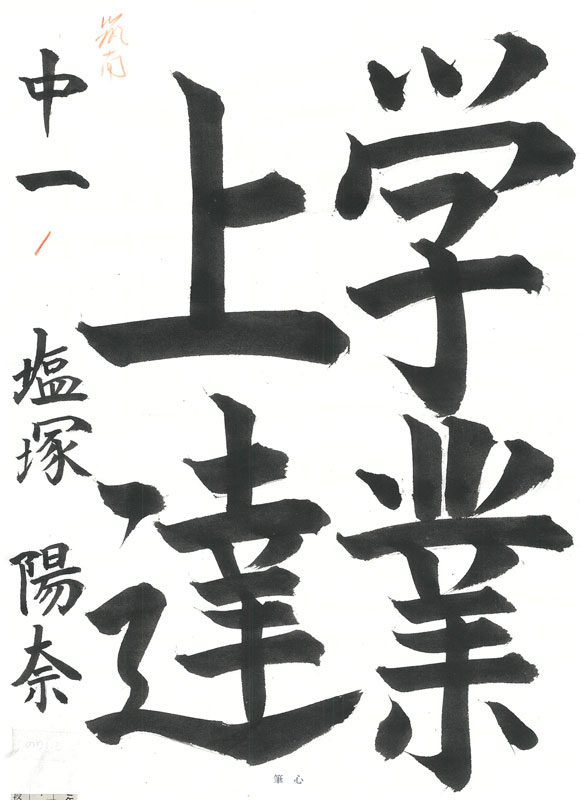 学業
上達
中一 塩塚 陽奈
筑南
筆心